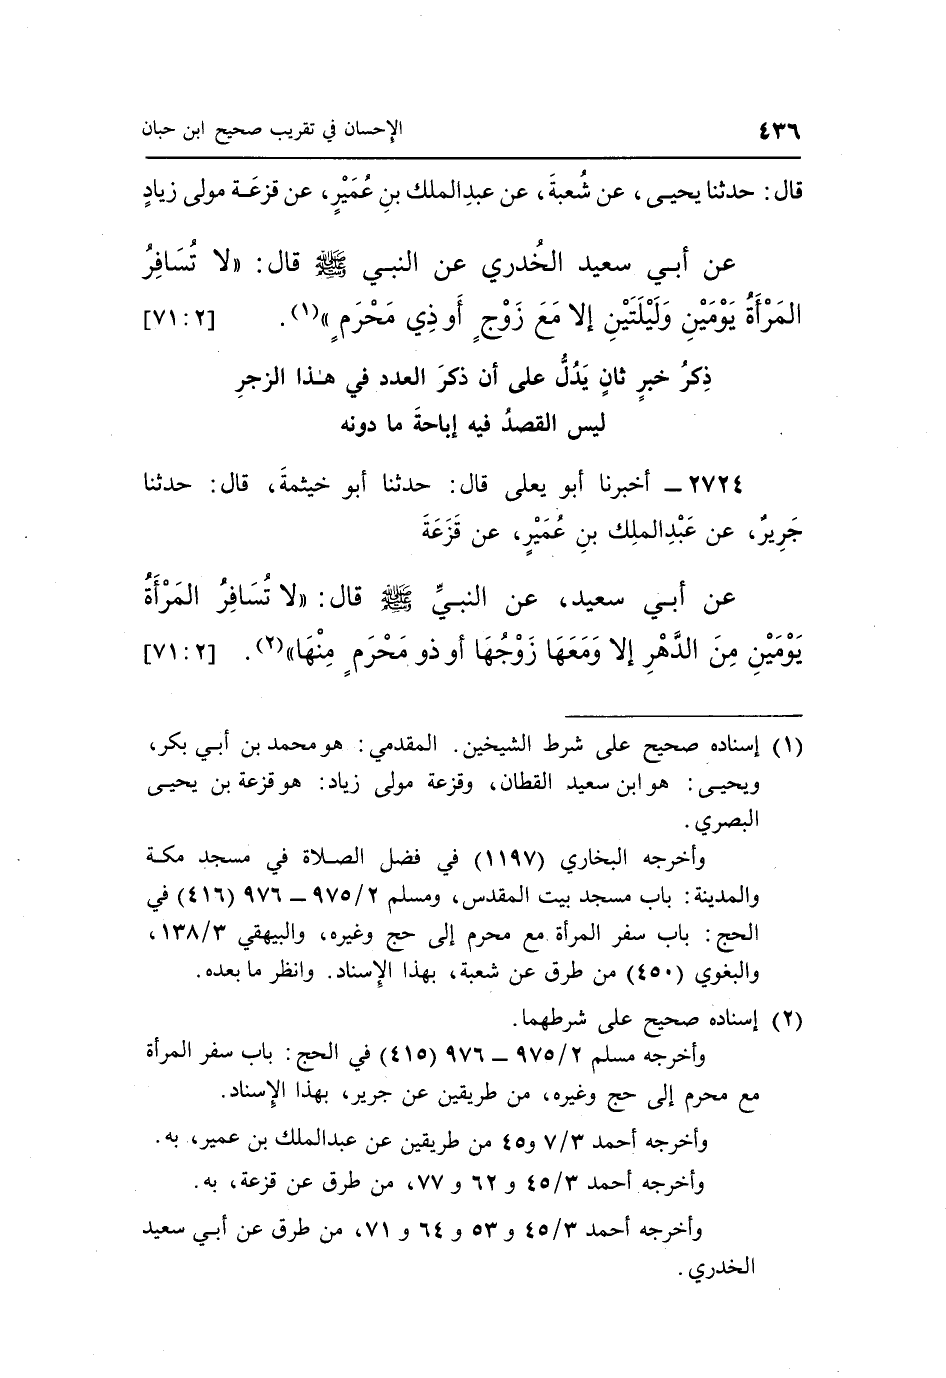 ٤٣٦ الإحسان في تقريب صحيح ابن حبان
قال: حدثنا يحيـى، عن شُعبةَ، عن عبدِالملك بنِ عُمَيْرٍ، عن قزعَـة مولى زيادٍ
عن أبـي سعيد الخُدري عن النبـي ﷺ قال: «لا تُسَافِرُ
المَرْأَةُ يَوْمَيْنِ وَلَيْلَتَيْنِ إلا مَعَ زَوْجٍ أَو ذِي مَحْرَمٍ»(١). [٧١:٢]
ذِكرُ خبرٍ ثانٍ يَدُلُّ على أن ذكرَ العدد في هـٰذا الزجرِ
ليس القصدُ فيه إباحةَ ما دونه
٢٧٢٤ ـ أخبرنا أبو يعلى قال: حدثنا أبو خيثمةَ، قال: حدثنا
جَرِيرٌ، عن عَبْدِالملِك بنِ عُمَيْرٍ، عن قَزَعَةَ
عن أبـي سعيد، عن النبـيِّ ﷺ قال: «لا تُسَافِرُ المَرْأَةُ
يَوْمَيْنِ مِنَ الدَّهْرِ إلا وَمَعَهَا زَوْجُهَا أو ذو مَحْرَمٍ مِنْهَا»(٢). [٧١:٢]
(١) إسناده صحيح على شرط الشيخين. المقدمي: هو محمد بن أبـي بكر،
ويحيـى: هو ابن سعيد القطان، وقزعة مولى زياد: هو قزعة بن يحيـى
البصري.
وأخرجه البخاري (١١٩٧) في فضل الصـلاة في مسجد مكـة
والمدينة: باب مسجد بيت المقدس، ومسلم ٩٧٥/٢ ـ ٩٧٦ (٤١٦) في
الحج: باب سفر المرأة مع محرم إلى حج وغيره، والبيهقي ١٣٨/٣،
والبغوي (٤٥٠) من طرق عن شعبة، بهذا الإسناد. وانظر ما بعده.
(٢) إسناده صحيح على شرطهما.
وأخرجه مسلم ٩٧٥/٢ ـ ٩٧٦ (٤١٥) في الحج: باب سفر المرأة
مع محرم إلى حج وغيره، من طريقين عن جرير، بهذا الإسناد.
وأخرجه أحمد ٧/٣ و٤٥ من طريقين عن عبدالملك بن عمير، به.
وأخرجه أحمد ٤٥/٣ و ٦٢ و ٧٧، من طرق عن قزعة، به.
وأخرجه أحمد ٤٥/٣ و ٥٣ و ٦٤ و ٧١، من طرق عن أبـي سعيد
الخدري.